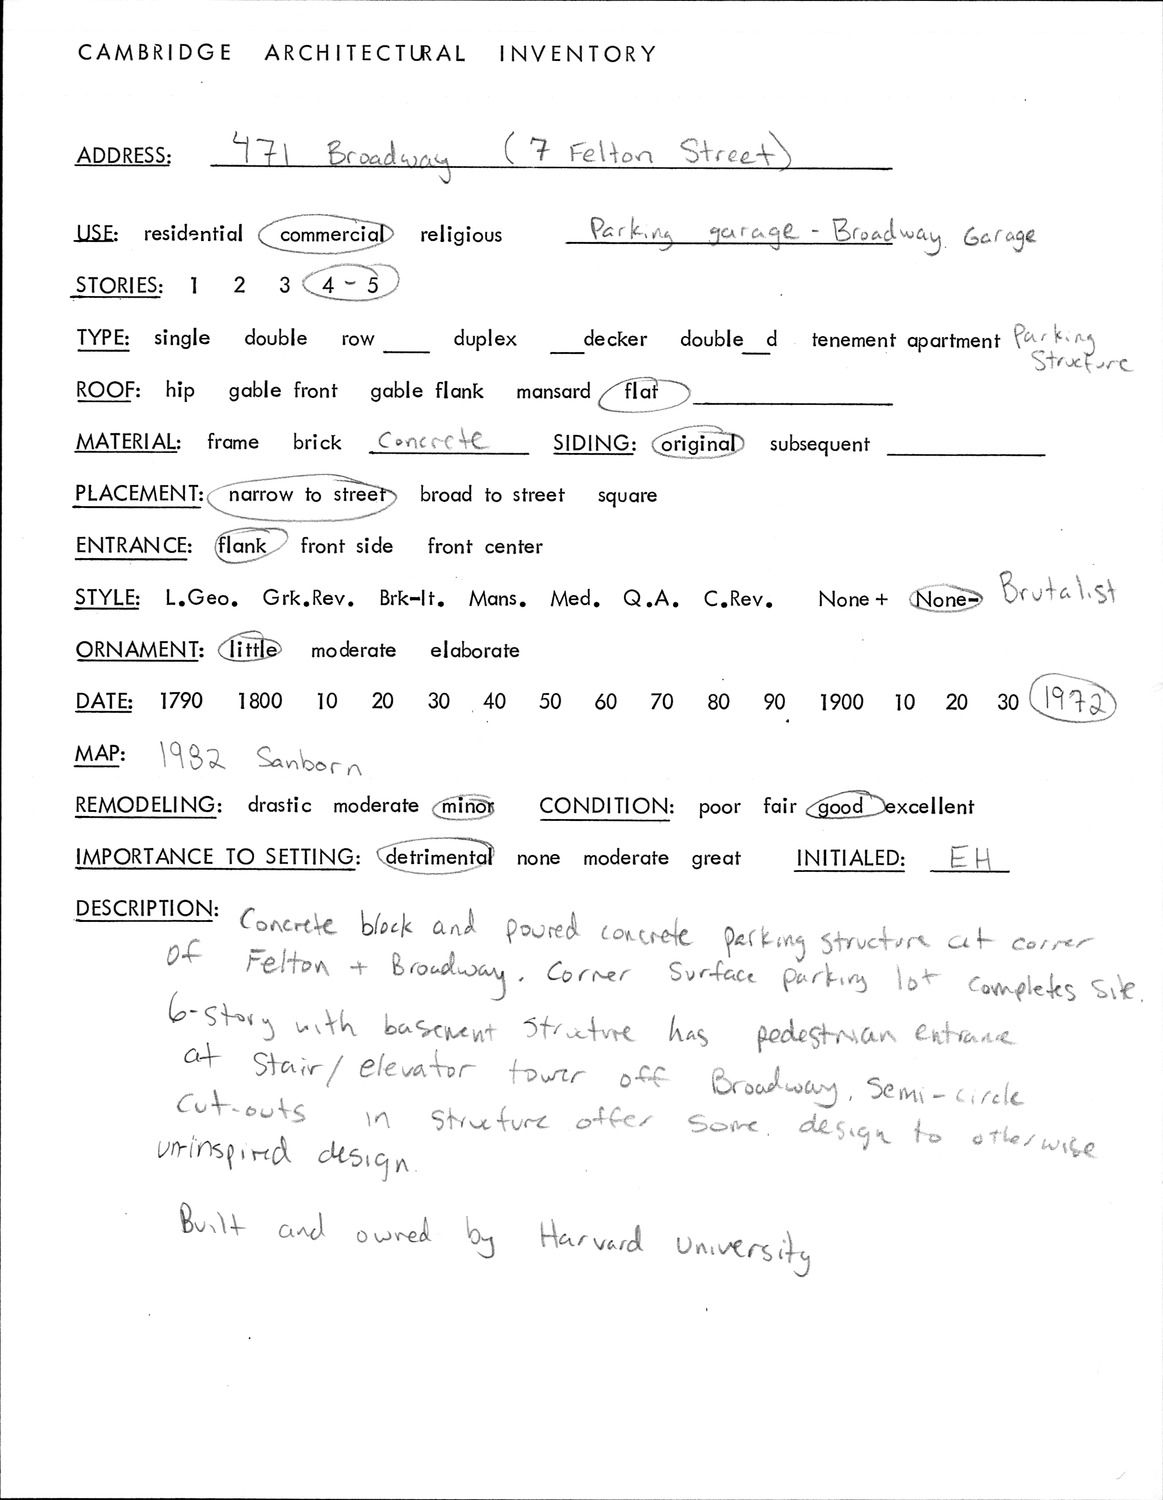 CAMBRIDGE ARCHITECTURAL INVENTORY
ADDRESS: 471 Broadway (7 Felton Street)
USE: residential commercial religious Parking garage - Broadway Garage
STORIES: 1 2 3 4 - 5
TYPE: single double row ____ duplex ___decker double__d tenement apartment Parking
Structure
ROOF: hip gable front gable flank mansard flat
MATERIAL: frame brick Concrete SIDING: original subsequent
PLACEMENT: narrow to street broad to street square
ENTRANCE: flank front side front center
STYLE: L.Geo. Grk.Rev. Brk-It. Mans. Med. Q.A. C.Rev. None+ None- Brutalist
ORNAMENT: little moderate elaborate
DATE: 1790 1800 10 20 30 40 50 60 70 80 90 1900 10 20 30 1972
MAP: 1982 Sanborn
REMODELING: drastic moderate minor CONDITION: poor fair good excellent
IMPORTANCE TO SETTING: detrimental none moderate great INITIALED: EH
DESCRIPTION: Concrete block and poured concrete parking structure at corner
of Felton + Broadway. Corner Surface parking lot completes site.
6-story with basement structure has pedestrian entrance
at Stair/elevator tower off Broadway. Semi-circle
Cut-outs in structure offer some design to otherwise
uninspired design.
Built and owned by Harvard University